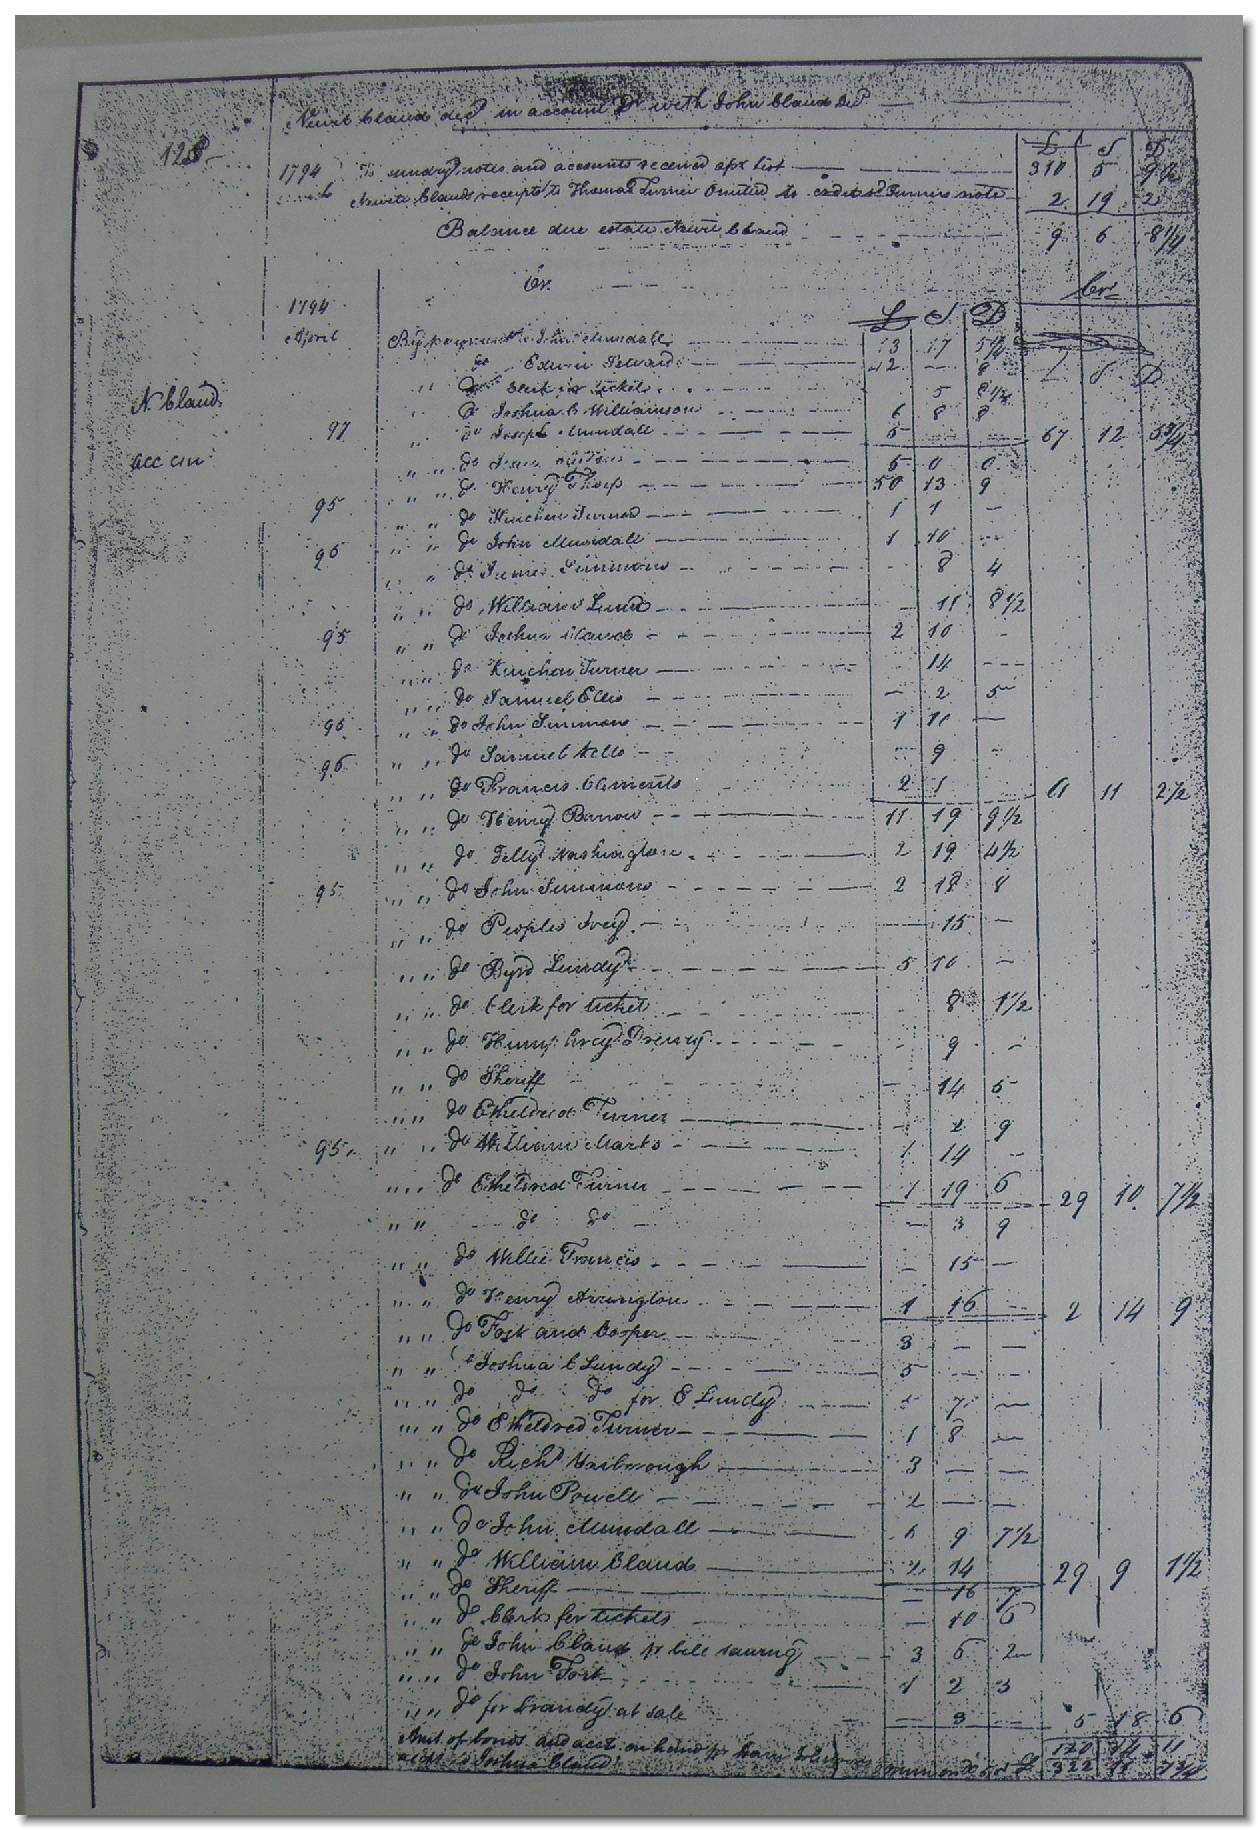 Newit Claud decd in account Dr with John Claud decd
128
£ S D
1794 To sundry notes and accounts received apr list 310 5 9 1/2
Newit Clauds receipts to Thomas Turner Omitted to credit sd Turners note 2 19 2
Balance due estate Newit Claud 9 6 8 1/4
Cr.
Crs
1794
£ S D
April By payment to John Mundall 13 17 5 1/4
do Edwin 42 — 8
£ S D
" do Clerk for tickets 5
N Claud
" do Joshua C Williamson 6 8 8
97 " do Joseph Mundall 5 67 12 5 3/4
acc cur
" " do 5 0 0
" " do Henry Thorp 50 13 9
95 " " do Kinchen Turner 1 1 —
96 " " do John Mundall 1 10 —
" " do James Simmons 8 4
" " do William Lund 11 8 1/2
95 " " do Joshua Claud 2 10 —
" " do Kinchen Turner 14 —
" " do Samuel Ellis — 2 5
96 " " do John Simmons 1 11 —
96 " " do Samuel Kello 9 —
" " do Francis Clements 2 1 61 11 2 1/2
" " do Henry Barrow 11 19 9 1/2
" " do Washington 2 19 4 1/2
95 " " do John Simmons 2 18 8
" " do Peoples Ivey — 15 —
" " do Byrd Lundy 5 10 —
" " do Clerk for ticket 8 1 1/2
" " do Humphrey Drewry 9 —
" " do Sheriff — 14 5
" " do Etheldred Turner — 2 9
95 " " do William Marks 1 14 —
" " do Etheldred Turner 1 19 6 29 10 7 1/2
" " do do — 3 9
" " do Willie Francis — 15 —
" " do Henry Arrington 1 16 2 14 9
" " do Fort and Cosper 3 — —
" " do Joshua C Lundy 5 — —
" " do do do for E Lundy 5 7 —
" " do Etheldred Turner 1 8 —
" " do Richd Yarbrough 3 — —
" " do John Powell 2 — —
" " do John Mundall 6 9 7 1/2
" " do William Claud 2 14 29 9 1 1/2
" " do Sheriff — 16 7
" " do Clerks for tickets — 10 6
" " do John Claud pr bill 3 6 2
" " do John Fort 1 2 3
" " do for brandy at sale — 3 — 5 18 6
Amt. of bonds and acct. on hand pr
Joshua Claud 322